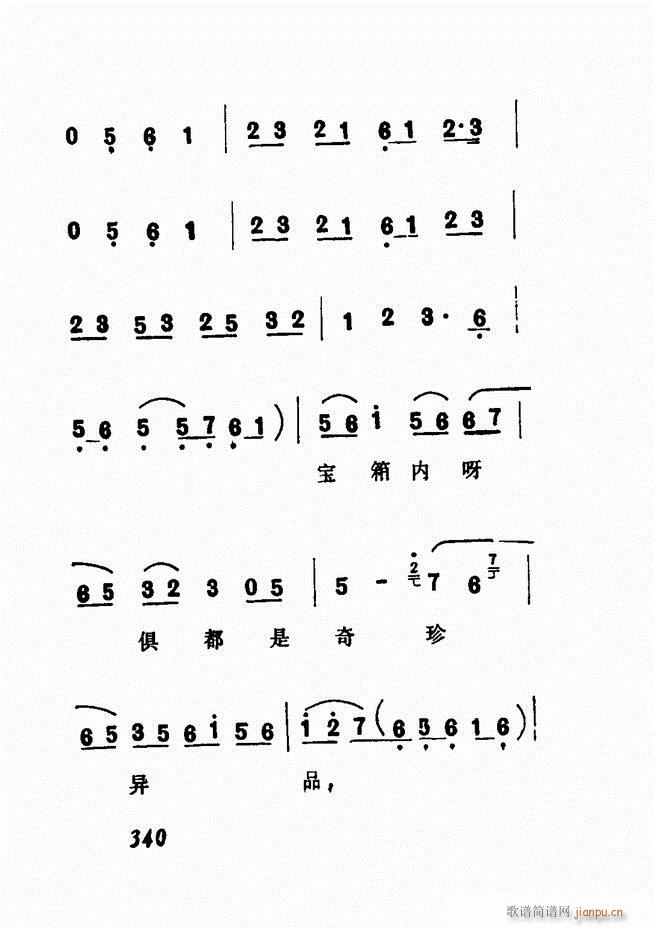 0 5 6 1 | 23 21 61 2·3 |
0 5 6 1 | 23 21 61 23 |
23 53 25 32 | 1 2 3· 6 |
56 5 57 61 ) | 56 i 56 67 |
宝 箱 内 呀
65 32 3 05 | 5 - 2 7 6 7 |
俱 都 是 奇 珍
65 35 6i 56 | i27 ( 6 56 16 ) |
异 品,
340
歌谱简谱网 jianpu.cn